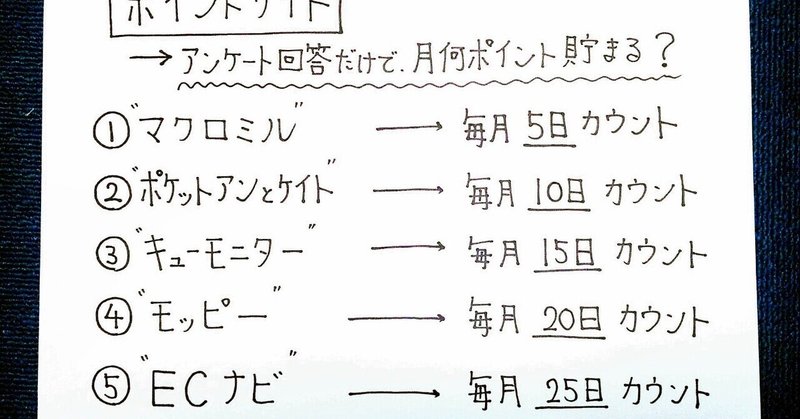 ポイントサイト
→アンケート回答だけで、月何ポイント貯まる?
①"マクロミル" → 毎月 5日 カウント
②"ポケットアンとケイト" → 毎月 10日 カウント
③"キューモニター" → 毎月 15日 カウント
④"モッピー" → 毎月 20日 カウント
⑤"ECナビ" → 毎月 25日 カウント